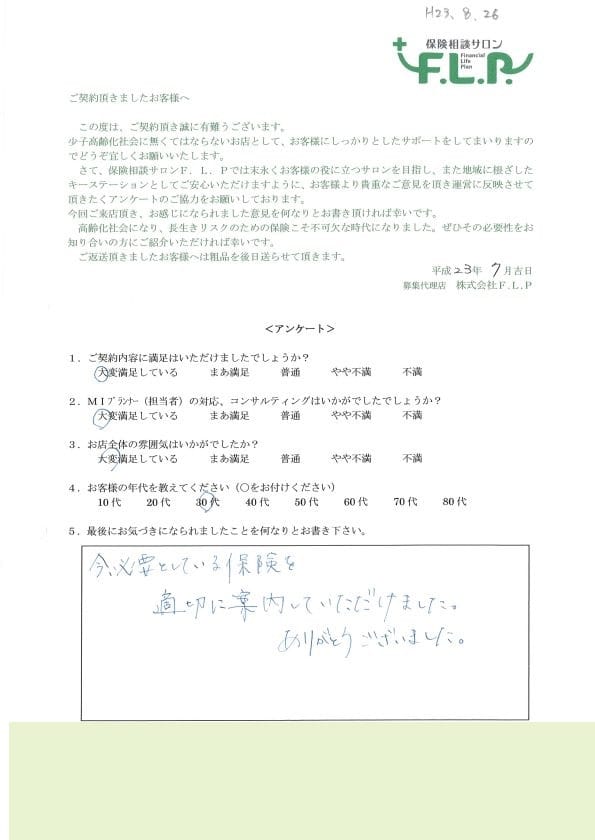 H23. 8. 26
保険相談サロン
F.L.P.
Financial
Life
Plan
ご契約頂きましたお客様へ
この度は、ご契約頂き誠に有難うございます。
少子高齢化社会に無くてはならないお店として、お客様にしっかりとしたサポートをしてまいりますの
でどうぞ宜しくお願いいたします。
さて、保険相談サロンF．L．Pでは末永くお客様の役に立つサロンを目指し、また地域に根ざした
キーステーションとしてご安心いただけますように、お客様より貴重なご意見を頂き運営に反映させて
頂きたくアンケートのご協力をお願いしております。
今回ご来店頂き、お感じになられました意見を何なりとお書き頂ければ幸いです。
高齢化社会になり、長生きリスクのための保険こそ不可欠な時代になりました。ぜひその必要性をお
知り合いの方にご紹介いただければ幸いです。
ご返送頂きましたお客様へは粗品を後日送らせて頂きます。
平成23年 7月吉日
募集代理店 株式会社F.L.P
＜アンケート＞
1．ご契約内容に満足はいただけましたでしょうか？
大変満足している まあ満足 普通 やや不満 不満
2．MIプランナー（担当者）の対応、コンサルティングはいかがでしたでしょうか？
大変満足している まあ満足 普通 やや不満 不満
3．お店全体の雰囲気はいかがでしたか？
大変満足している まあ満足 普通 やや不満 不満
4．お客様の年代を教えてください（○をお付けください）
10代 20代 30代 40代 50代 60代 70代 80代
5．最後にお気づきになられましたことを何なりとお書き下さい。
今、必要としている保険を
適切に案内していただけました。
ありがとうございました。